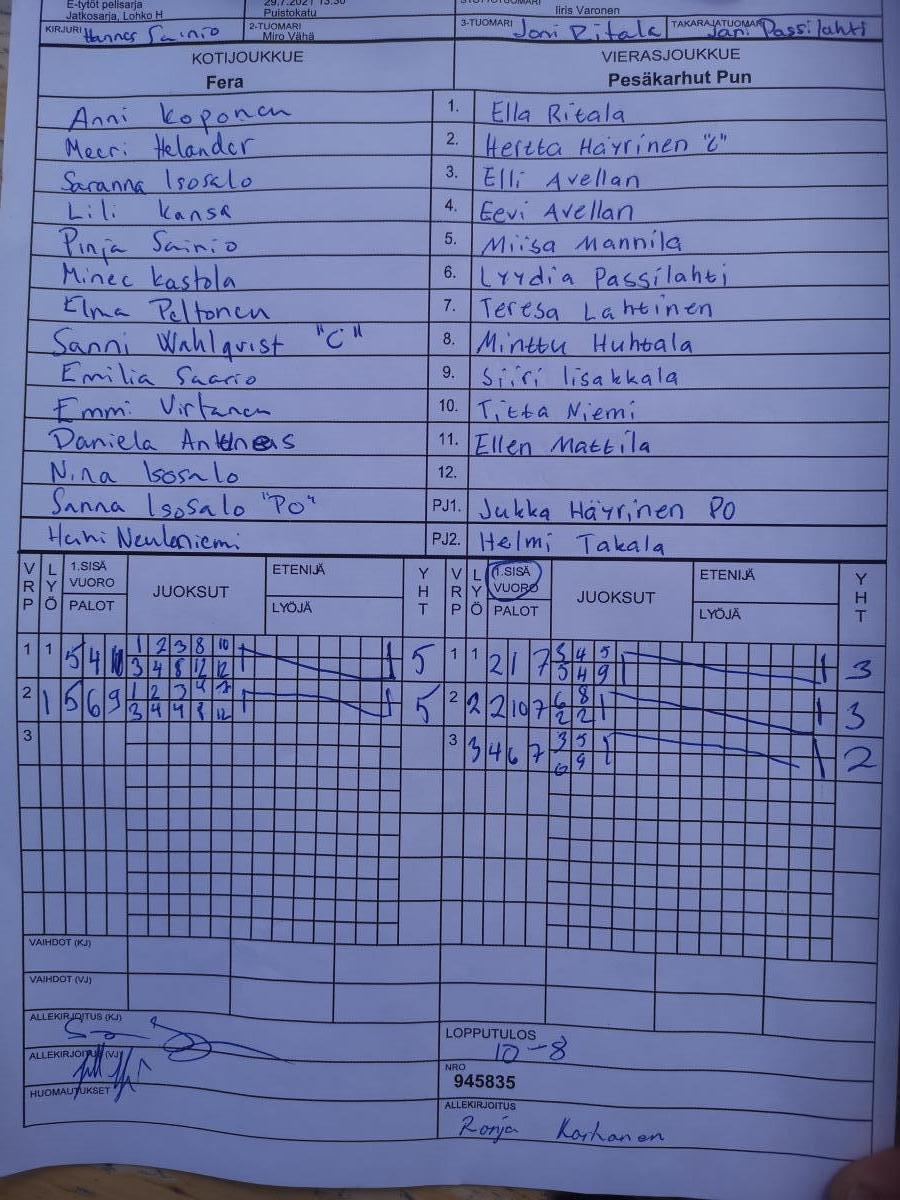 E-tytöt pelisarja
Jatkosarja, Lohko H
29.7.2021 13.30
Puistokatu
Iiris Varonen
KIRJURI Hannes Sainio
2-TUOMARI
Miro Vähä
3-TUOMARI Joni Ritala
TAKARAJATUOMARI Jani Passilahti
KOTIJOUKKUE
Fera
VIERASJOUKKUE
Pesäkarhut Pun
Anni Koponen 1. Ella Ritala
Meeri Helander 2. Hertta Häyrinen "C"
Saranna Isosalo 3. Elli Avellan
Lili Kansa 4. Eevi Avellan
Pinja Sainio 5. Miisa Mannila
Minec Kastola 6. Lyydia Passilahti
Elma Peltonen 7. Teresa Lahtinen
Sanni Wahlqvist "C" 8. Minttu Huhtala
Emilia Saario 9. Siiri Iisakkala
Emmi Virtanen 10. Titta Niemi
Daniela 11. Ellen Mattila
Nina Isosalo 12.
Sanna Isosalo "PO" PJ1. Jukka Häyrinen PO
PJ2. Helmi Takala
VRP LYÖ 1.SISÄ VUORO PALOT JUOKSUT ETENIJÄ LYÖJÄ YHT VRP LYÖ 1.SISÄ VUORO PALOT JUOKSUT ETENIJÄ LYÖJÄ YHT
1 1 5 4 1 2 3 8 10 5 1 1 2 1 7 3 4 5 3
3 4 8 12 12 5 4 9
2 1 5 6 9 1 2 3 4 5 2 2 2 10 7 6 8 3
3 4 4 8 12 2 2
3 3 3 4 6 7 3 5 2
6 9
VAIHDOT (KJ)
VAIHDOT (VJ)
ALLEKIRJOITUS (KJ)
ALLEKIRJOITUS (VJ)
HUOMAUTUKSET
LOPPUTULOS
10-8
NRO
945835
ALLEKIRJOITUS
Ronja Korhonen